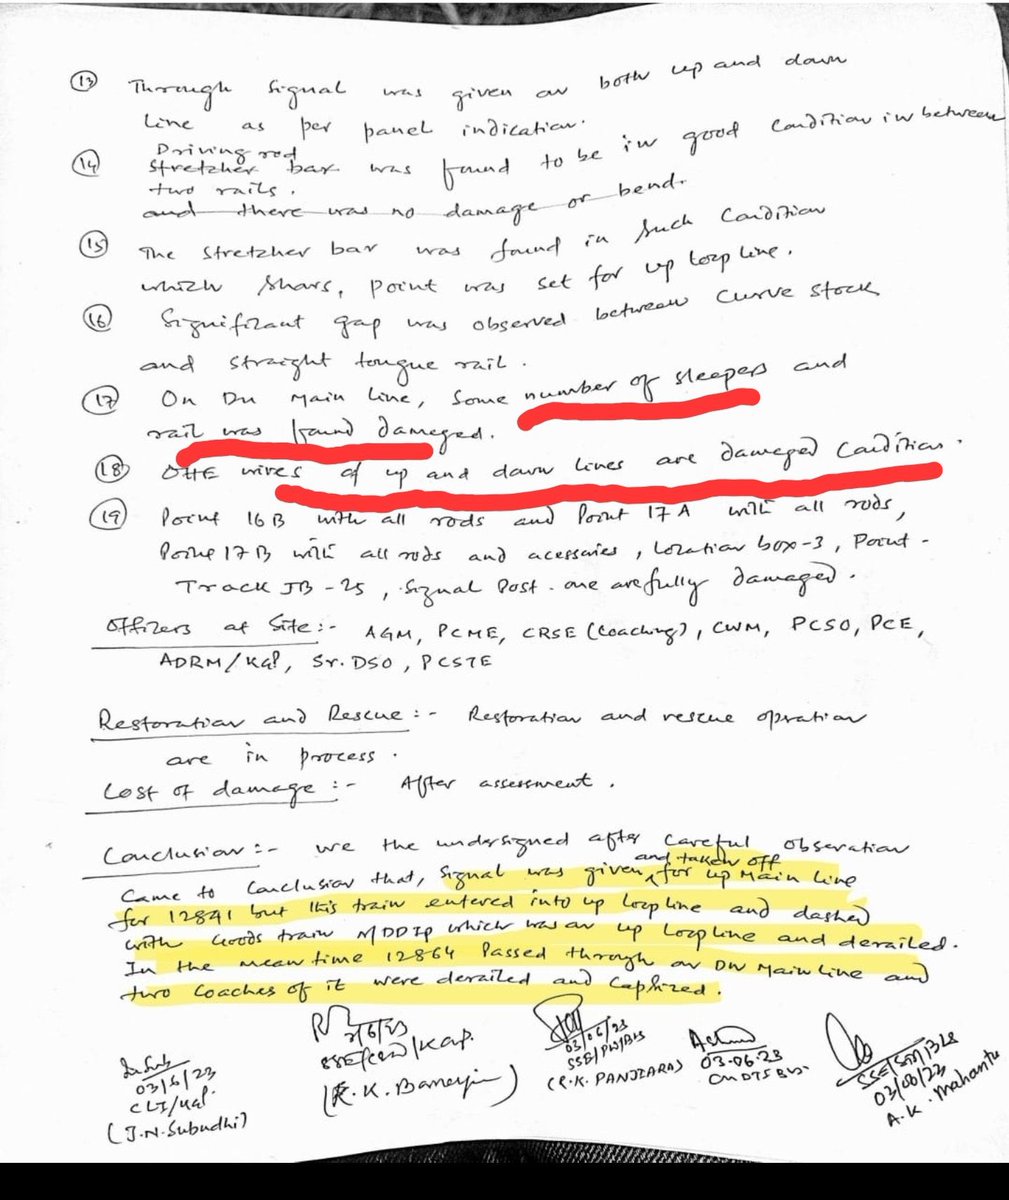 (13) Through signal was given on both up and down
line as per panel indication.
Driving rod
(14) stretzher bar was found to be in good condition in between
two rails.
and there was no damage or bend.
(15) The stretzher bar was found in such condition
which shows, point was set for up loop line.
(16) Significant gap was observed between curve stock
and straight tongue rail.
(17) On Dn Main line, some number of sleepers and
rail was found damaged.
(18) OHE wires of up and down lines are damaged condition.
(19) Point 16B with all rods and Point 17A with all rods,
Point 17B with all rods and acessaries, Location box-3, Point-
Track JB-25, Signal Post- one are fully damaged.
Officers at Site:- AGM, PCME, CRSE (Coaching), CWM, PCSO, PCE,
ADRM/KGP, Sr. DSO, PCSTE
Restoration and Rescue:- Restoration and rescue opration
are in process.
Cost of damage:- After assessment.
Conclusion:- We the undersigned after careful obseration
and taken off
Came to conclusion that, signal was given for up Main line
for 12841 but this train entered into up loop line and dashed
with Goods train MDDIP which was on up loop line and derailed.
In the meantime 12864 passed through on DN Main line and
two coaches of it were derailed and caphized.
03/6/23
CLI/KGP.
(J.N. Subudhi)
3/6/23
SSE/C&W/KGP.
(R.K. Banerjee)
03/06/23
SSE/PW/BLS
(R.K. PANJIARA)
03.06.23
03/06/23
A.K. Mahanta